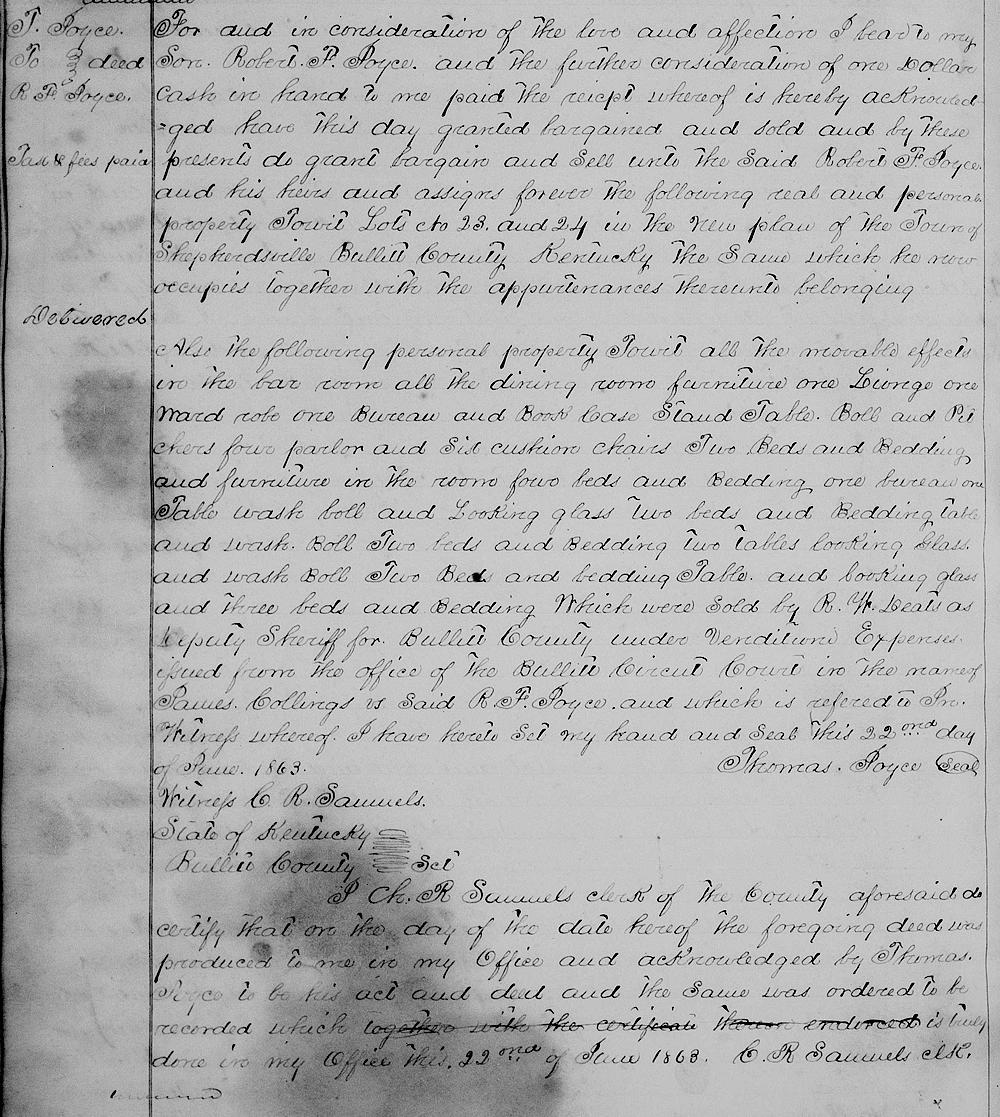 T. Joyce.
To deed
R F Joyce.
Tax & fees paid
Delivered
For and in consideration of the love and affection I bear to my
Son. Robert. F. Joyce. and the further consideration of one Dollar
cash in hand to me paid the reicpt whereof is hereby acknowled-
=ged have this day granted bargained and sold and by these
presents do grant bargain and Sell unto the Said Robert F Joyce.
and his heirs and assigns forever the following real and personal
property Towit Lots No 23. and 24 in the New plan of the Town of
Shepherdsville Bullitt County Kentucky the Same which he now
occupies together with the appurtenances thereunto belonging
Also the following personal property Towit all the movable effects
in the bar room all the dining room furniture one Lionge one
Ward robe one Bureau and Book Case Stand Table. Boll and Pit
chers four parlor and Six cushion chairs Two Beds and Bedding
and furniture in the room four beds and Bedding one bureau one
Table wash boll and Looking glass two beds and Bedding table
and wash. Boll Two beds and Bedding two tables looking Glass.
and wash Boll Two Beds and bedding Table. and looking glass
and three beds and Bedding Which were Sold by R. W. Deats as
Deputy Sheriff for. Bullitt County under Venditioni Expenses.
issued from the office of the Bullitt Circut Court in the name of
James. Collings vs Said R. F. Joyce. and which is refered to In.
Witness whereof. I have hereto Set my hand and Seal this 22nd day
of June. 1863. Thomas. Joyce Seal
Witness C. R. Samuels.
State of Kentucky
Bullitt County Sct
I Ch. R Samuels clerk of the County aforesaid do
certify that on the day of the date hereof the foregoing deed was
produced to me in my Office and acknowledged by Thomas.
Joyce to be his act and deed and the Same was ordered to be
recorded which together with the certificate thereon endorced is truly
done in my Office this. 22nd of June 1863. C. R Samuels clk.